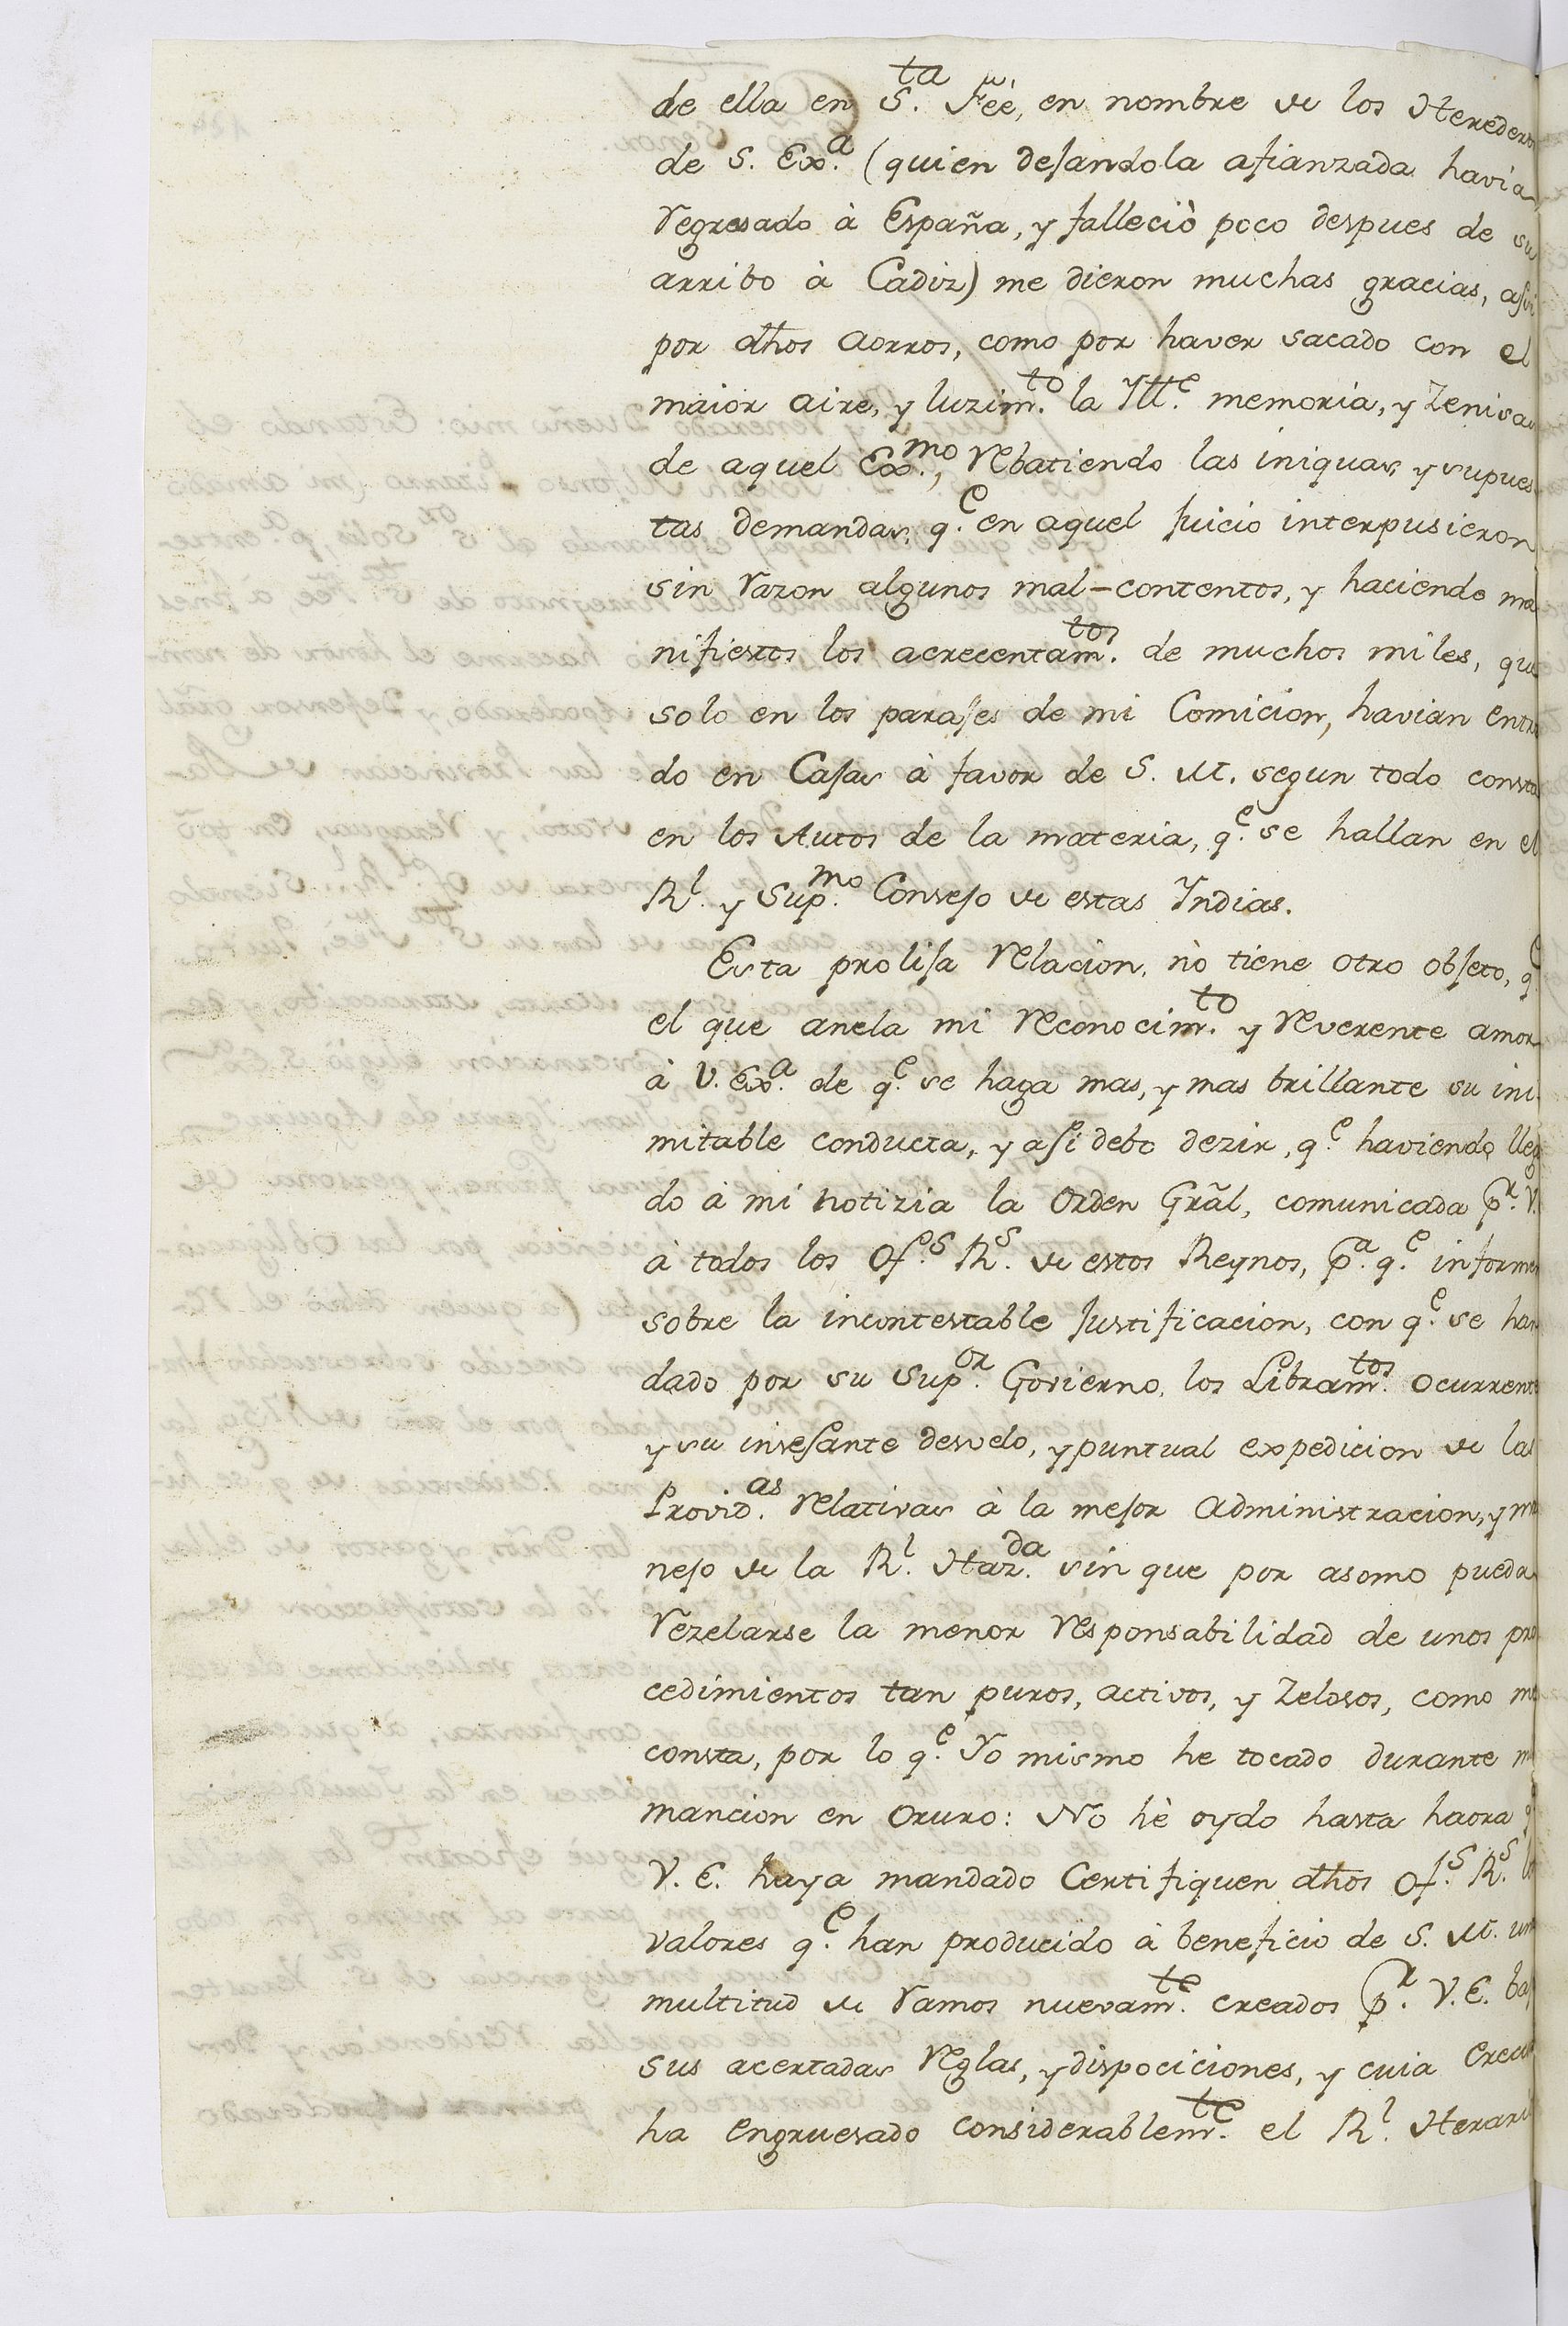 de ella en S.ta Feè, en nombre de los Herederos
de S. Ex.a (quien dejandola afianzada havia
regresado à España, y falleciò poco despues de su
arribo à Cadiz) me dieron muchas gracias, asi
por dhos aorros, como por haver sacado con el
maior aire, y luzim.to la Ill.e memoria, y Zenisas
de aquel Ex.mo, rebatiendo las iniquas, y supues
tas demandas, q.e en aquel juicio interpusieron
sin razon algunos mal-contentos, y haciendo ma
nifiestos los acrecentam.tos de muchos miles, que
solo en los parajes de mi Comicion, havian entra
do en Cajas à favor de S. M. segun todo consta
en los Autos de la materia, q.e se hallan en el
R.l y Sup.mo Consejo de estas Yndias.
Esta prolija relacion, nò tiene otro objeto, q.e
el que anela mi reconocim.to y reverente amor
à V. Ex.a de q.e se haga mas, y mas brillante su ini
mitable conducta, y asi debo dezir, q.e haviendo llega
do à mi notizia la Orden Grãl, comunicada p.r V.
à todos los Of.s R.s de estos Reynos, p.a q.e informen
sobre la incontestable justificacion, con q.e se han
dado por su Sup.or Govierno, los Libram.tos ocurrentes
y su insesante desvelo, y puntual expedicion de las
Provid.as relativas à la mejor administracion, y ma
nejo de la R.l Haz.da sin que por asomo pueda
rezelarse la menor responsabilidad de unos pro
cedimientos tan puros, activos, y Zelosos, como me
consta, por lo q.e Yo mismo he tocado durante mi
mancion en Oruro: No hè oydo hasta haora q.e
V. E. haya mandado Certifiquen dhos Of.s R.s los
valores q.e han producido à beneficio de S. M. una
multitud de ramos nuevam.te creados p.r V. E. bajo
sus acertadas reglas, y dispociciones, y cuia
ha engruesado considerablem.te el R.l Herario